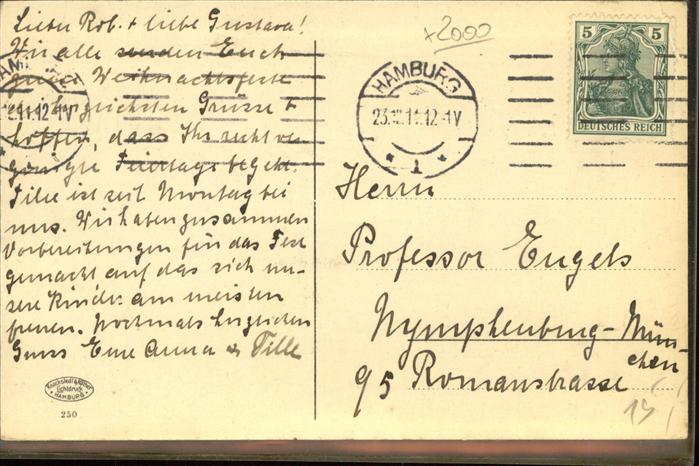 Lieber Rob. + liebe Gustava!
Wir alle senden Euch
zum Weihnachtsfeste
die herzlichsten Grüsse +
hoffen, dass Ihr recht ver-
gnügte Feiertage begeht.
Tilla ist seit Montag bei
uns. Wir haben zusammen
Vorbereitungen für das Fest
gemacht auf das sich un-
sere Kinder am meisten
freuen. Nochmals herzlichen
Gruss Eure Anna & Tille
Knackstedt & Näther
Lichtdruck
HAMBURG
250
x2000
HAMBURG
12-1V
1
5 5
DEUTSCHES REICH
Herrn
Professor Engels
Nymphenburg-Mün-
chen
95 Romanstrasse